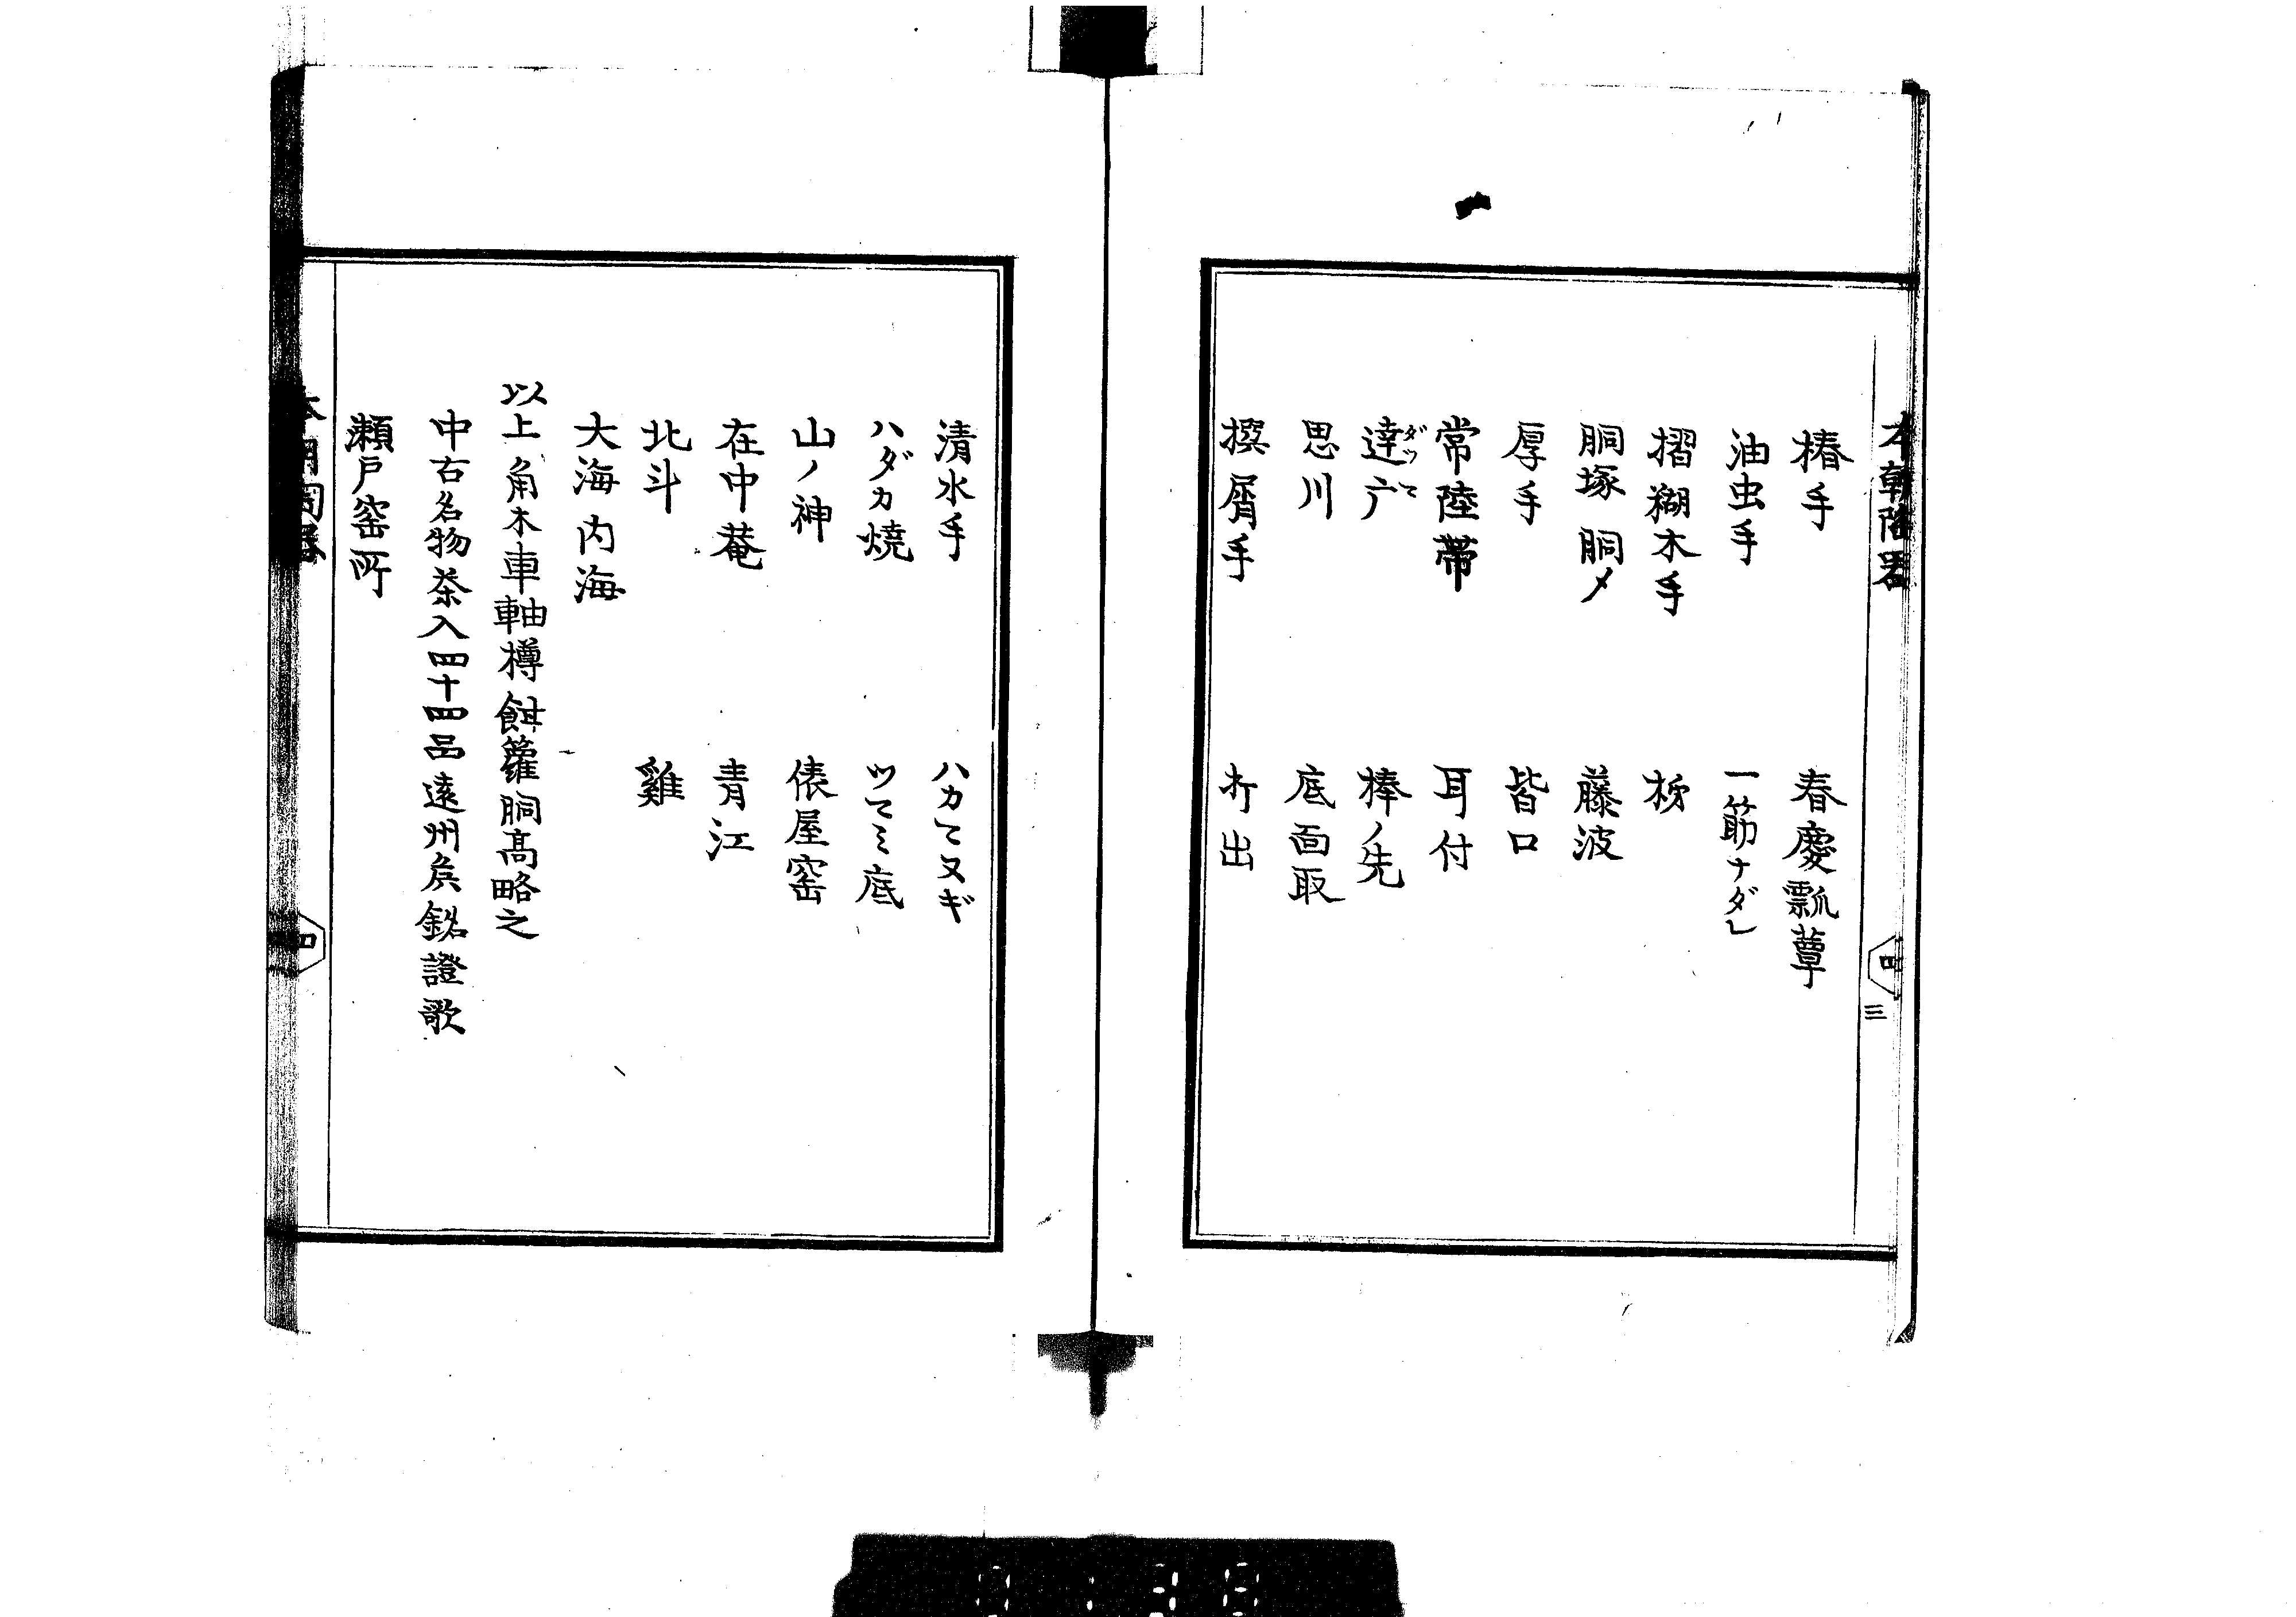 本朝陶器
四
三
椿手 春慶瓢蕈
油虫手 一筋ナダレ
摺糊木手
胴塚 胴〆 藤波
厚手 皆口
常陸帯 耳付
達广 棒ノ先
思川 底面取
撰屑手 打出
清水手 ハカマヌギ
ハダカ焼 ツマミ底
山ノ神 俵屋窑
在中菴 青江
北斗 雞
大海 内海
以上角木車軸樽餅籮胴高略之
中右名物茶入四十四品遠州矦銘證歌
瀬戸窑所
四